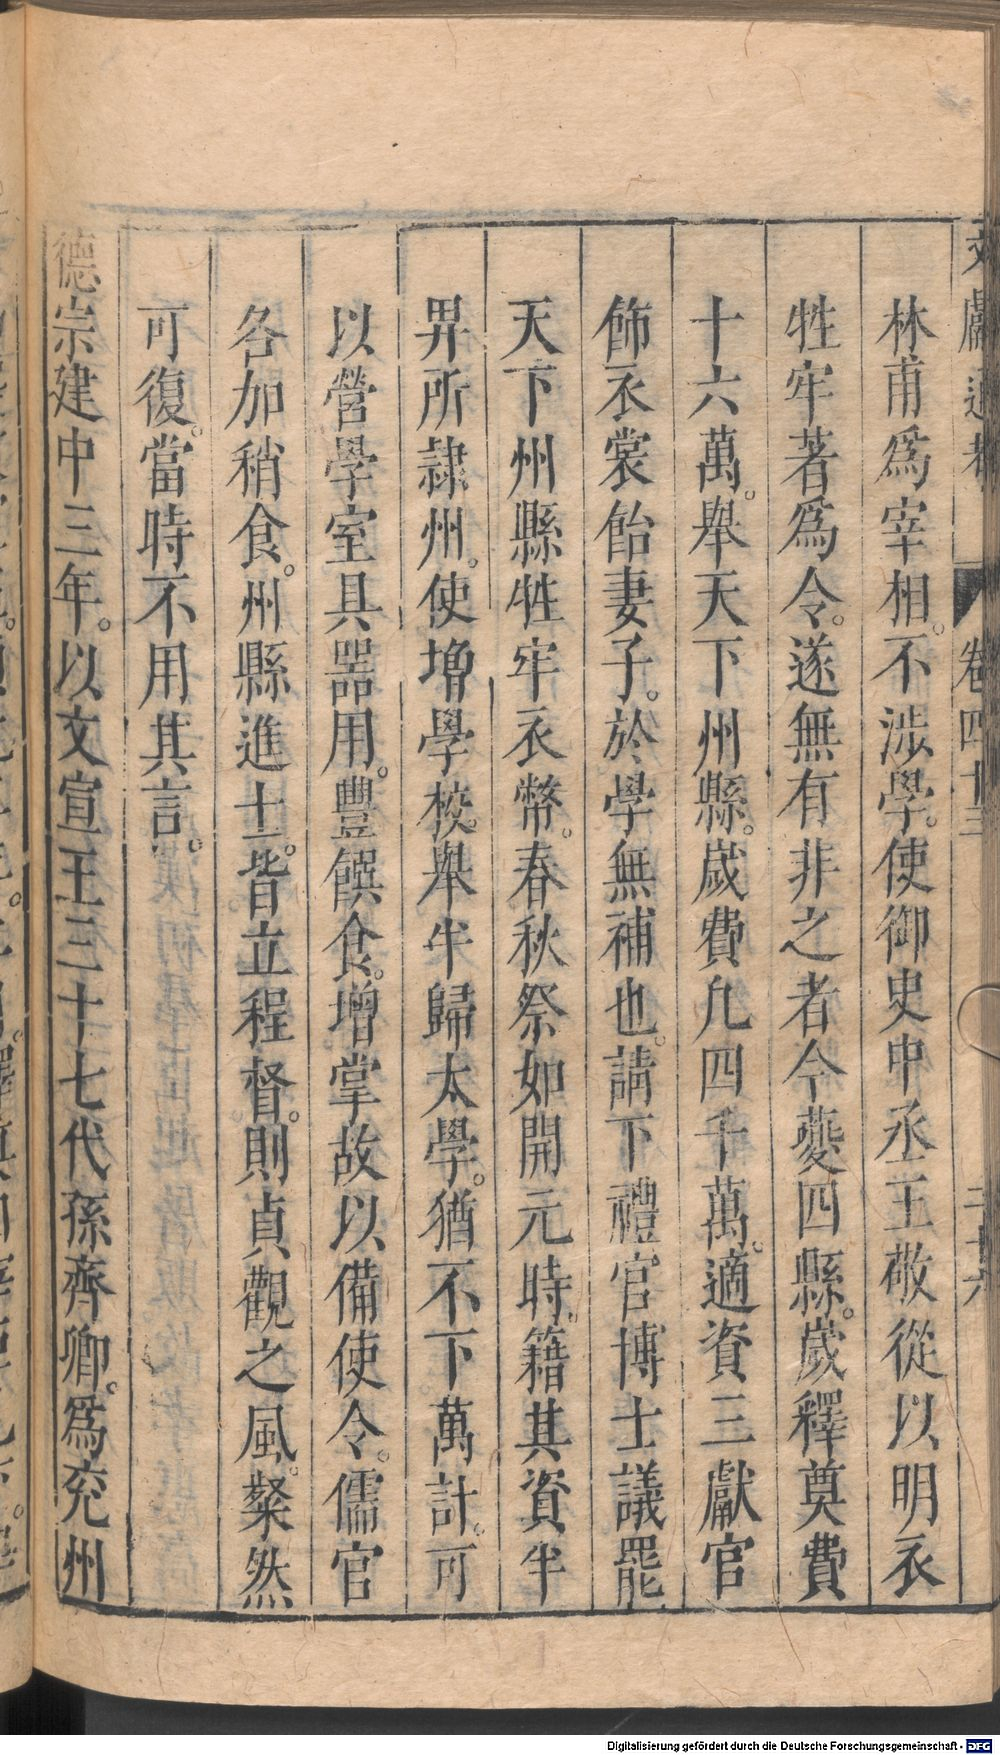 文獻通考 卷四十三 二十六
林甫爲宰相。不涉學。使御史中丞王敬從以明衣
牲牢著爲令。遂無有非之者今夔四縣。歲釋奠費
十六萬。舉天下州縣。歲費凡四千萬。適資三獻官
飾衣裳飴妻子。於學無補也。請下禮官博士議罷
天下州縣牲牢衣幣。春秋祭如開元時。籍其資半
畀所隷州。使增學校。舉半歸太學。猶不下萬計。可
以營學室具器用。豐饌食。增掌故以備使令。儒官
各加稍食。州縣進士。皆立程督。則貞觀之風。粲然
可復。當時不用其言。
德宗建中三年。以文宣王三十七代孫齊卿。爲兖州
Digitalisierung gefördert durch die Deutsche Forschungsgemeinschaft - DFG